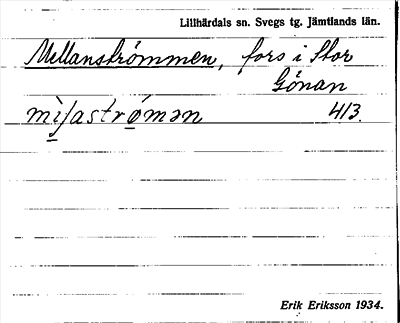 Lillhärdals sn. Svegs tg. Jämtlands län.
Mellanströmmen, fors i Stor
Gönan
413.
Erik Eriksson 1934.